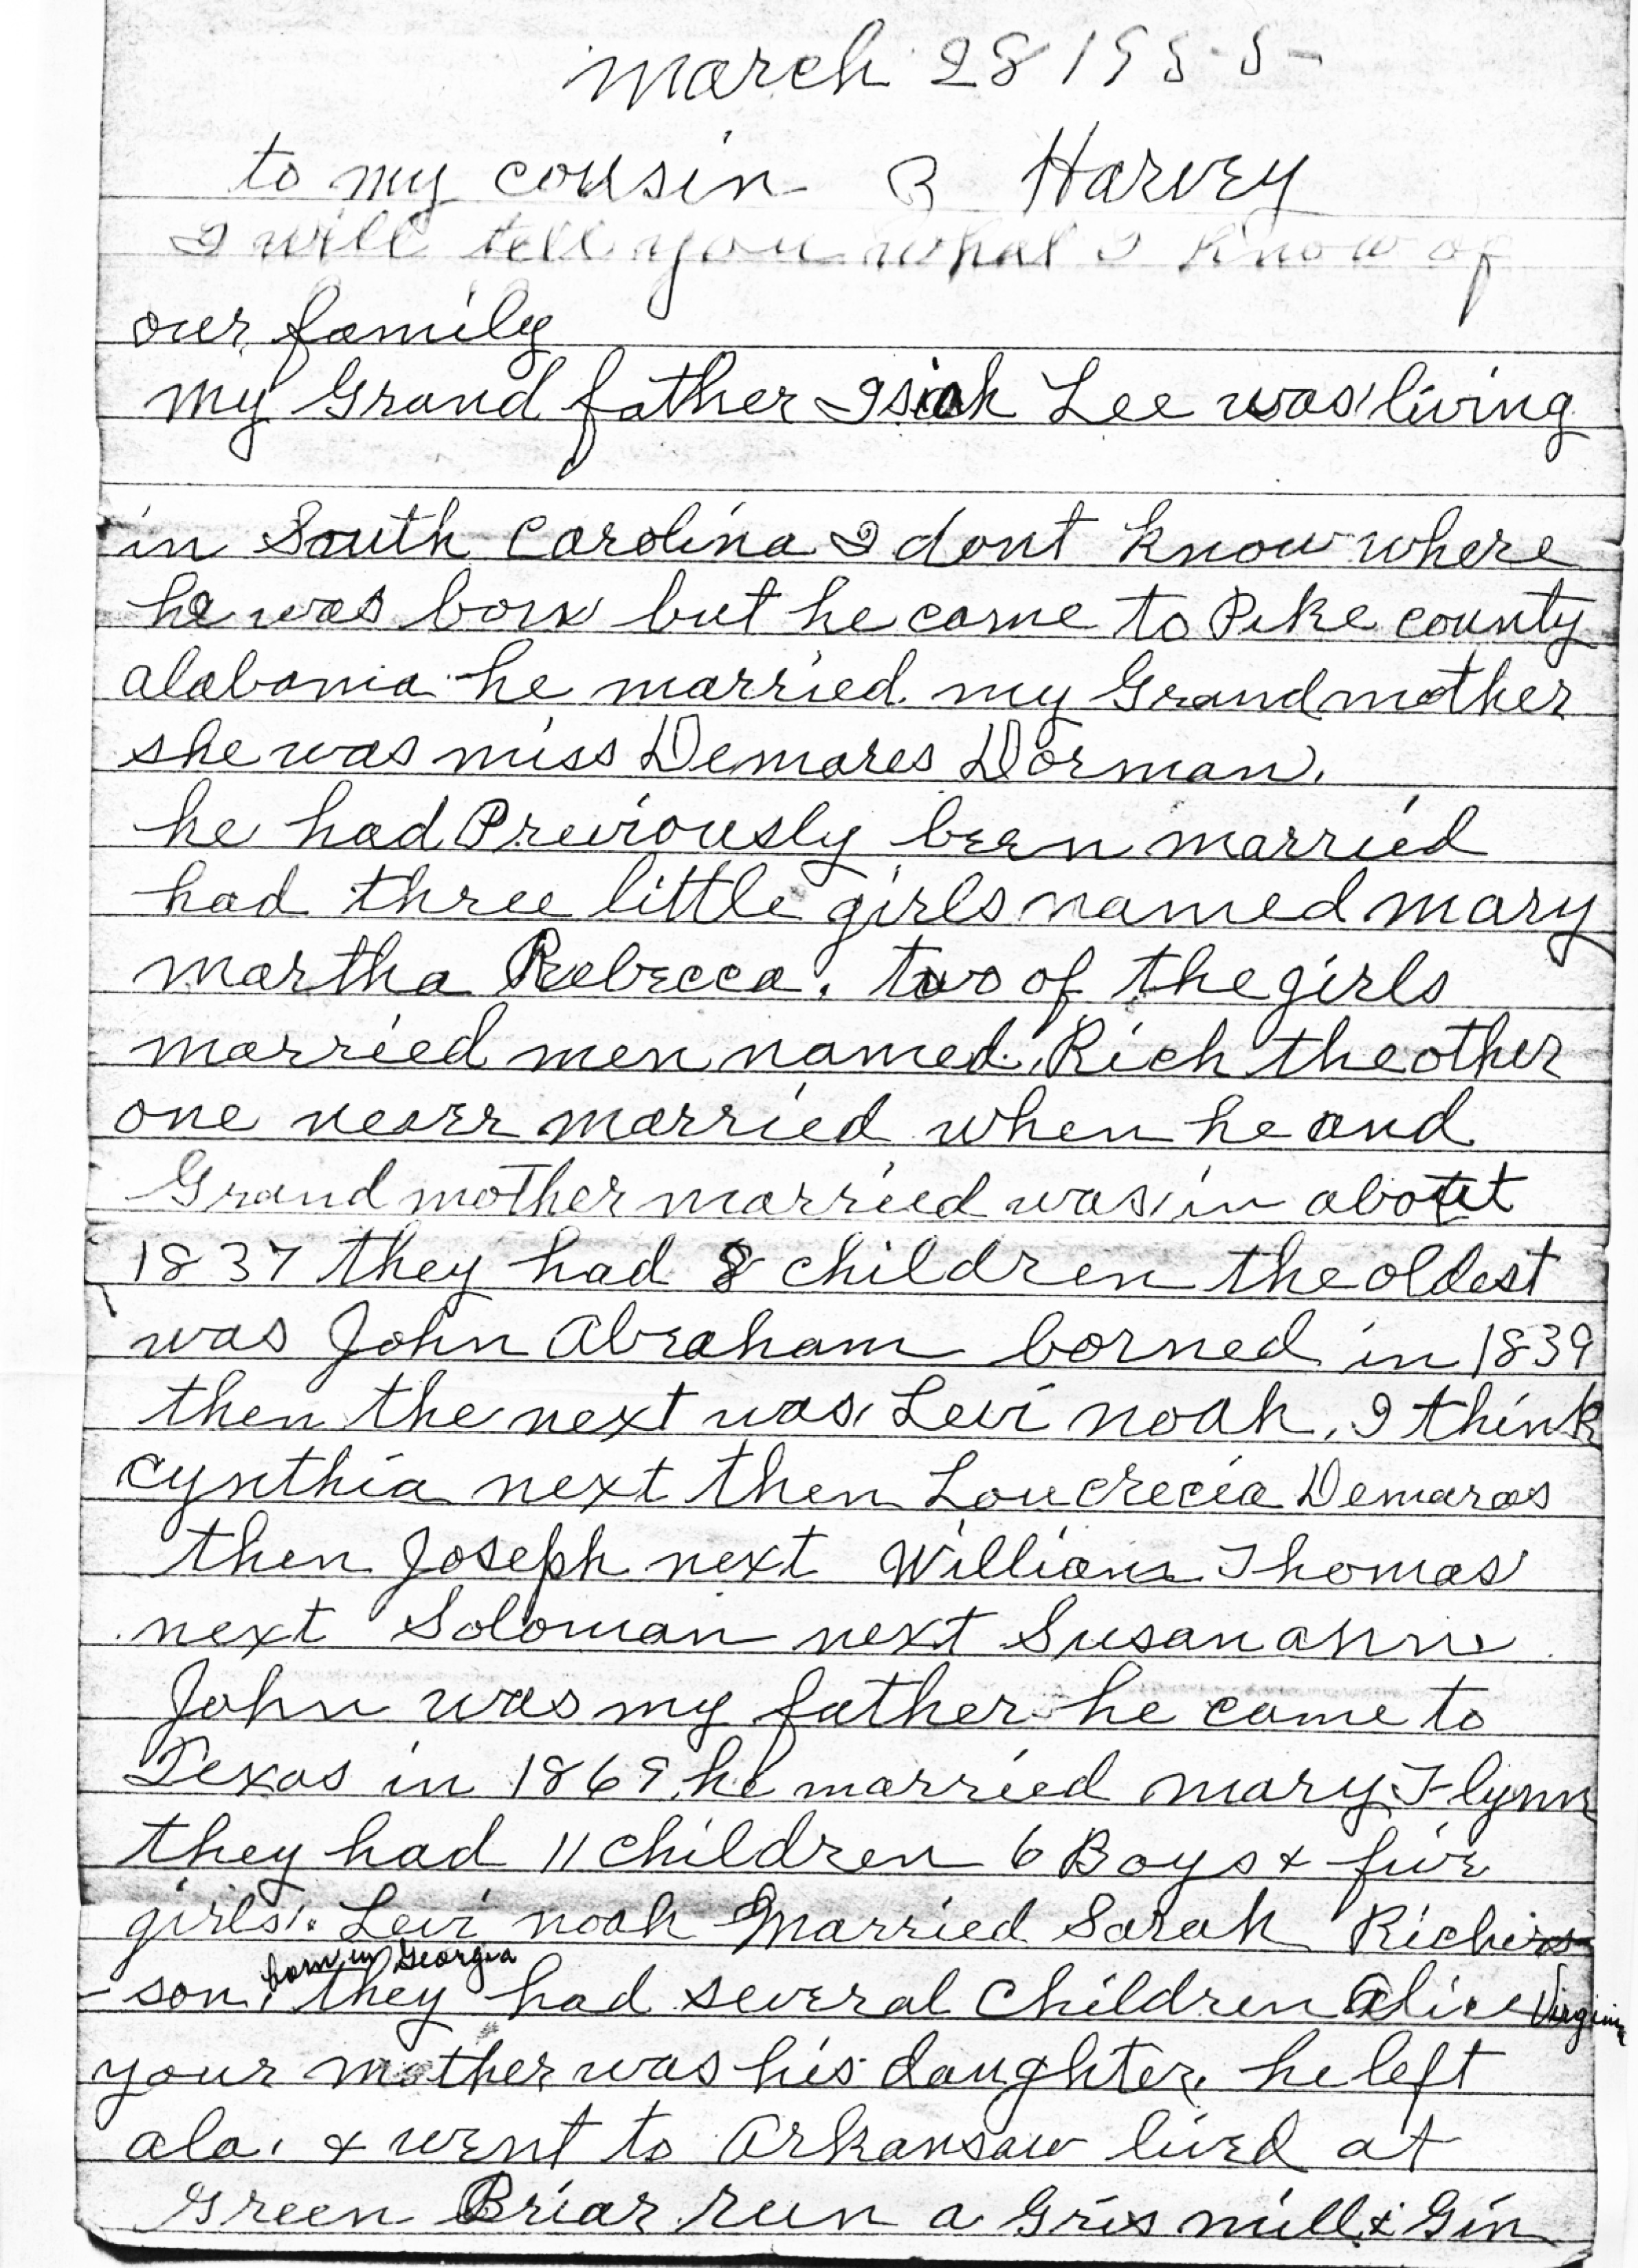 march 28 1955
to my cousin B Harvey
I will tell you what I know of
our family
my Grand father Isiah Lee was living
in South Carolina I dont know where
he was born but he came to Pike county
alabama he married my Grandmother
she was miss Demares Dorman.
he had Previously been married
had three little girls named mary
martha Rebecca. two of the girls
married men named Rich the other
one never married when he and
Grand mother married was in about
1837 they had 8 children the oldest
was John Abraham borned in 1839
then the next was Levi noah. I think
cynthia next then Loucrecia Demaras
then Joseph next William Thomas
next Soloman next Susanann
John was my father he came to
Texas in 1869 he married mary Flynn
they had 11 children 6 Boys & five
girls. Levi noah Married Sarah Richers
born in Georgia
-son. they had several children Alice Virginia
your mother was his daughter. he left
ala. & went to Arkansaw lived at
Green Briar run a Gris mill & Gin